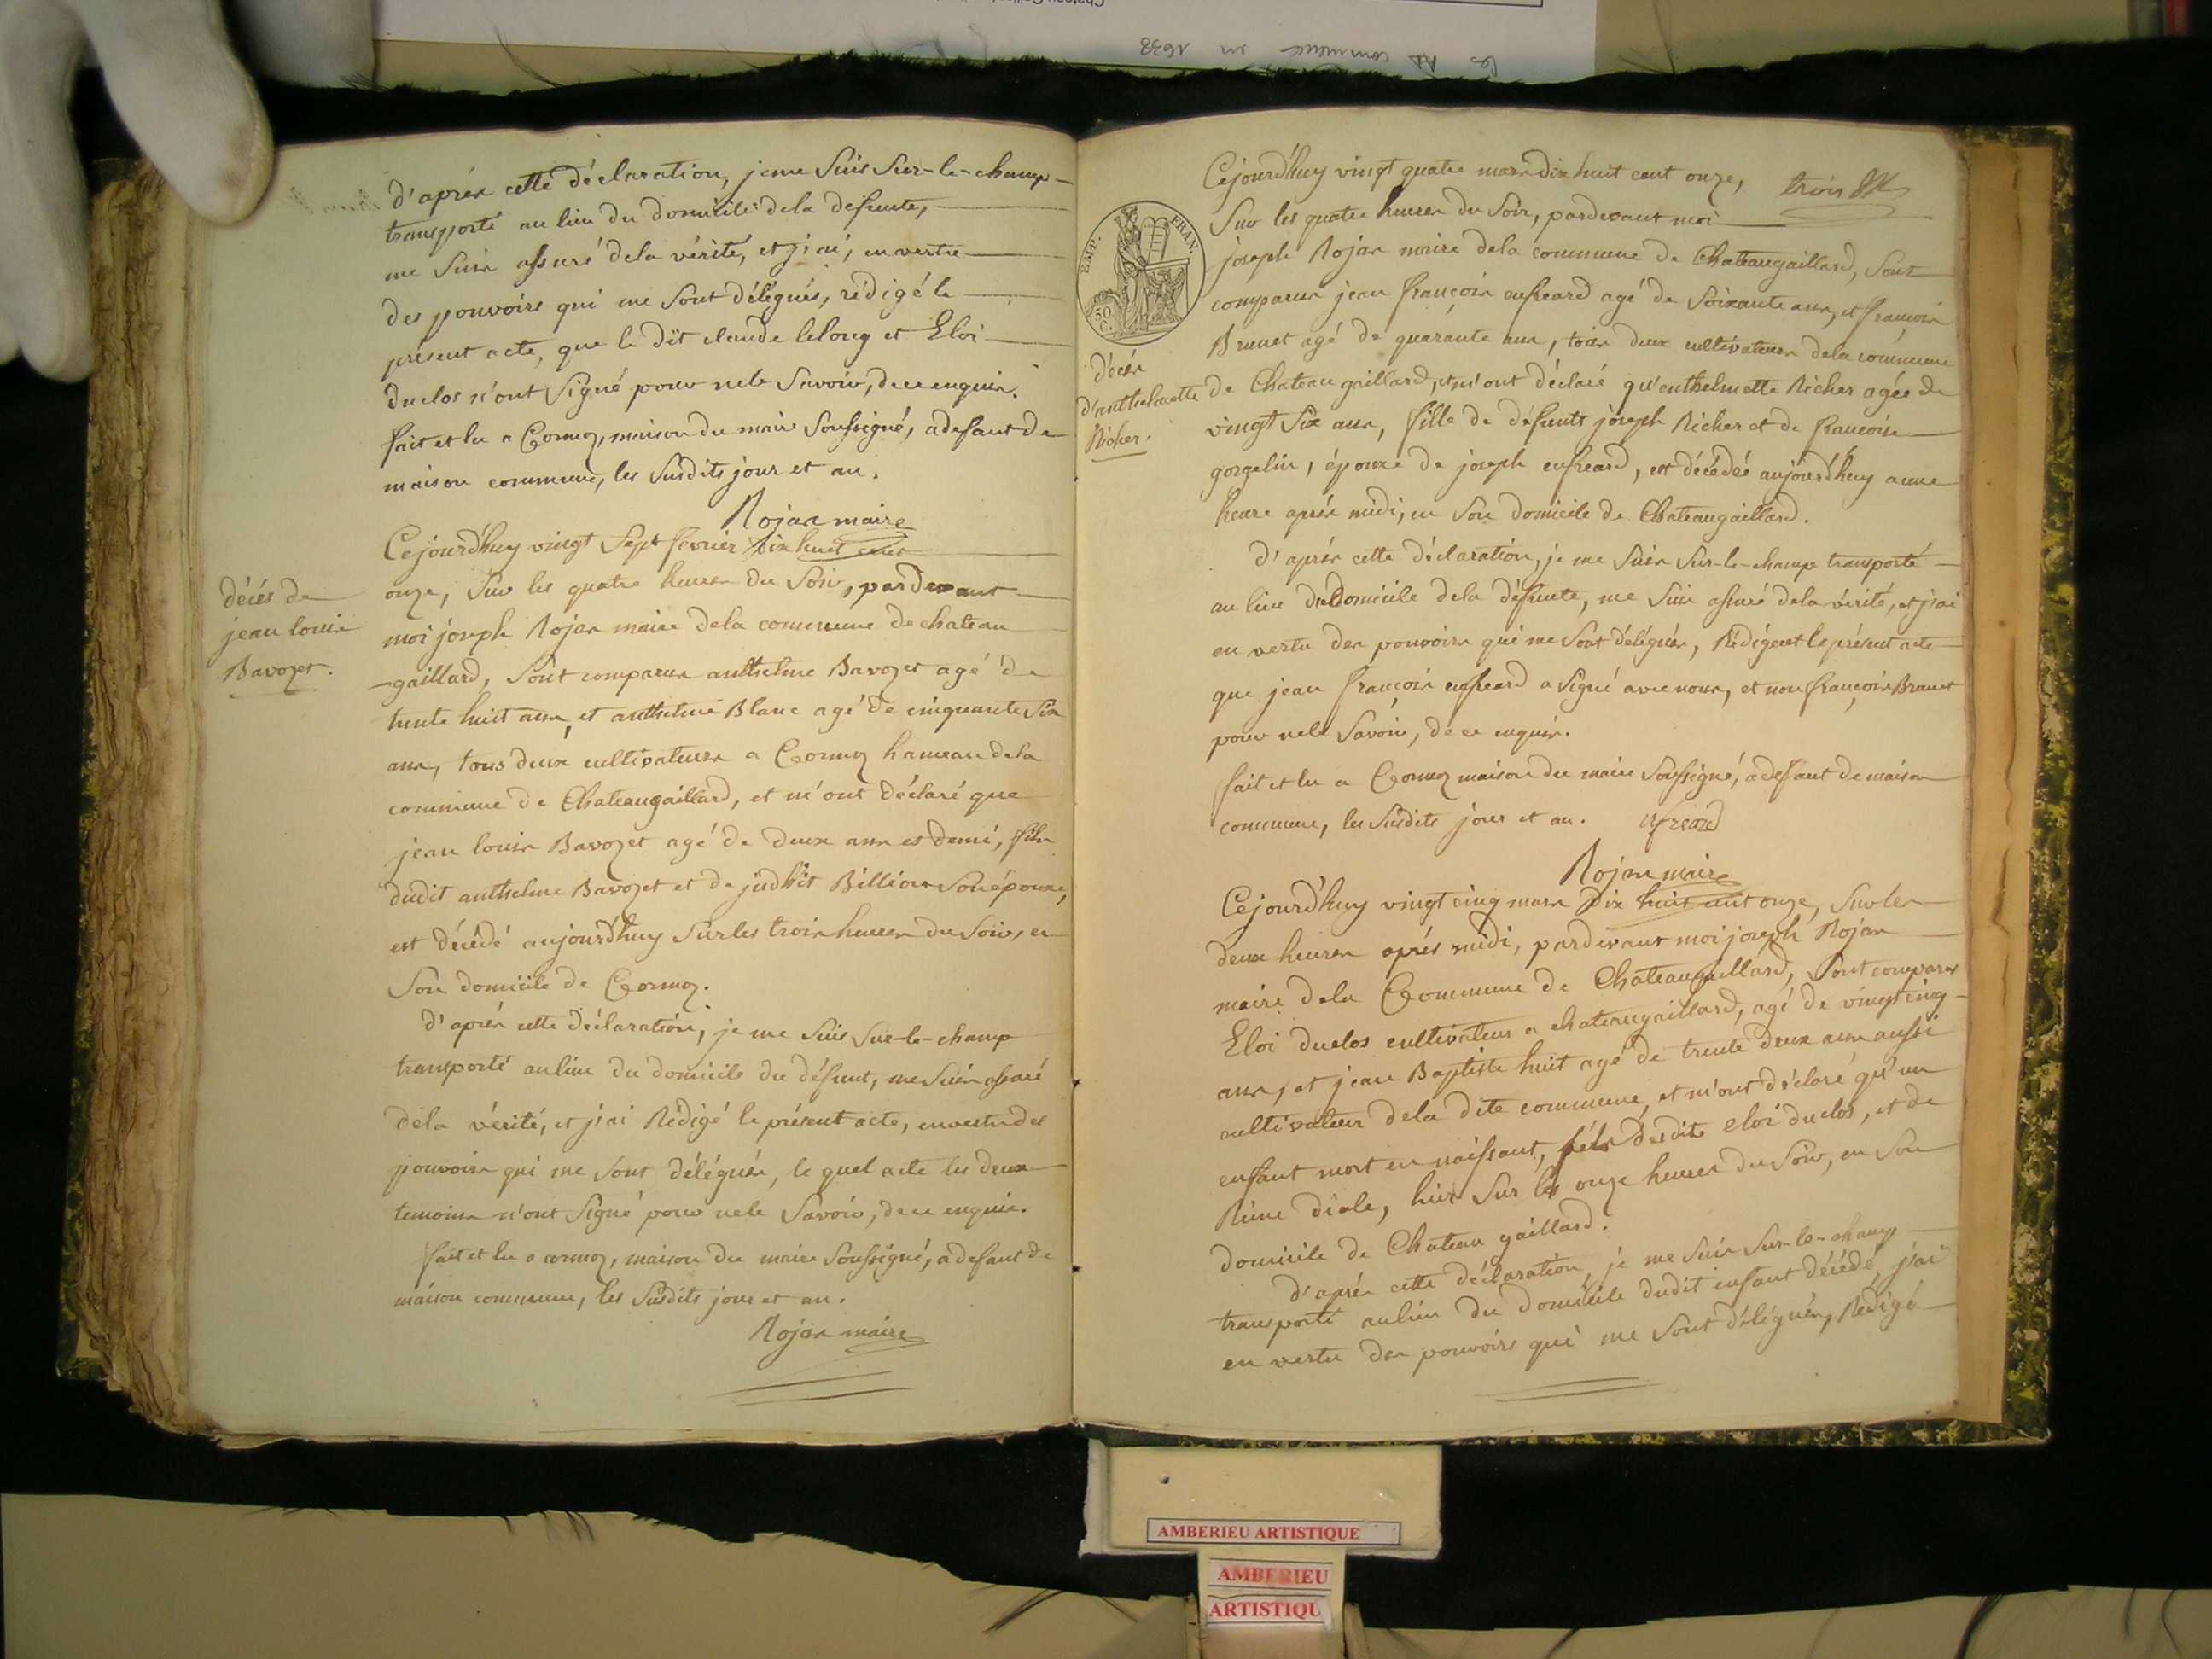 ce RP commence en 1638
d'après cette déclaration, je me suis sur-le-champ
transporté au lieu du domicile dela defunte,
me suis assuré dela vérité, et j'ai, en vertu
des pouvoirs qui me sont délégués, rédigé le
présent acte, que le dit claude lelong et Eloi
duclos n'ont signé pour nele savoir, de ce enquis.
fait et lu a Cormoz, maison du maire soussigné, a defaut de
maison commune, les susdits jour et an.
Rojas maire
décés de
jean louis
Bavozet.
Cejourd'huy vingt sept fevrier dix huit cent
onze, sur les quatre heures du soir, pardevant
moi joseph Rojas maire dela commune de chateau
-gaillard, sont comparus anthelme Bavozet agé de
trente huit ans, et anthelme Blanc agé de cinquante six
ans, tous deux cultivateurs a Cormoz hameau dela
commune de Chateaugaillard, et m'ont déclaré que
jean louis Bavozet agé de deux ans et demi, fils
dudit anthelme Bavozet et de judhit Billion son épouse,
est décédé aujourd'huy sur les trois heures du soir, en
son domicile de Cormoz.
d'après cette déclaration, je me suis sur-le-champ
transporté au lieu du domicile du défunt, me suis assuré
dela vérité, et j'ai Rédigé le présent acte, en vertu des
pouvoirs qui me sont délégués, le quel acte les deux
temoins n'ont signé pour nele savoir, de ce enquis.
fait et lu a cormoz, maison du maire soussigné, a defaut de
maison commune, les susdits jour et an.
Rojas maire
EMP. FRAN.
50
C.
trois
Cejourd'huy vingt quatre mars dix huit cent onze,
sur les quatre heures du soir, pardevant moi
joseph Rojas maire dela commune de Chateaugaillard, sont
comparus jean françois enfreard agé de soixante ans, et françois
Brunet agé de quarante ans, tous deux cultivateurs dela commune
décès
d'anthelmette
Richer.
de Chateau gaillard, et m'ont déclaré qu'anthelmette Richer agée de
vingt six ans, fille de défunts joseph Richer et de francoise
gorgelin, épouse de joseph enfreard, est décédée aujourd'huy a une
heure après midi, en son domicile de Chateaugaillard.
d'après cette déclaration, je me suis sur-le-champ transporté
au lieu du domicile dela défunte, me suis assuré dela vérité, et j'ai
en vertu des pouvoirs qui me sont délégués, Rédigé le présent acte
que jean françois enfreard a signé avec nous, et non françois Brunet
pour nele savoir, de ce enquis.
fait et lu a Cormoz maison du maire soussigné, a defaut de maison
commune, les susdits jour et an.
Rojas maire
Cejourd'huy vingt cinq mars dix huit cent onze, sur les
deux heures après midi, pardevant moi joseph Rojas
maire dela Commune de Chateaugaillard, sont comparus
Eloi duclos cultivateur a chateaugaillard, agé de vingt cinq
ans, et jean Baptiste huit agé de trente deux ans aussi
cultivateur dela dite commune, et m'ont déclaré qu'un
enfant mort en naissant, fils dudit eloi duclos, et de
Reine diale, hier sur les onze heures du soir, en son
domicile de Chateau gaillard.
d'après cette déclaration, je me suis sur-le-champ
transporté au lieu du domicile dudit enfant décédé, j'ai
en vertu des pouvoirs qui me sont délégués, Rédigé
AMBERIEU ARTISTIQUE
AMBERIEU
ARTISTIQU